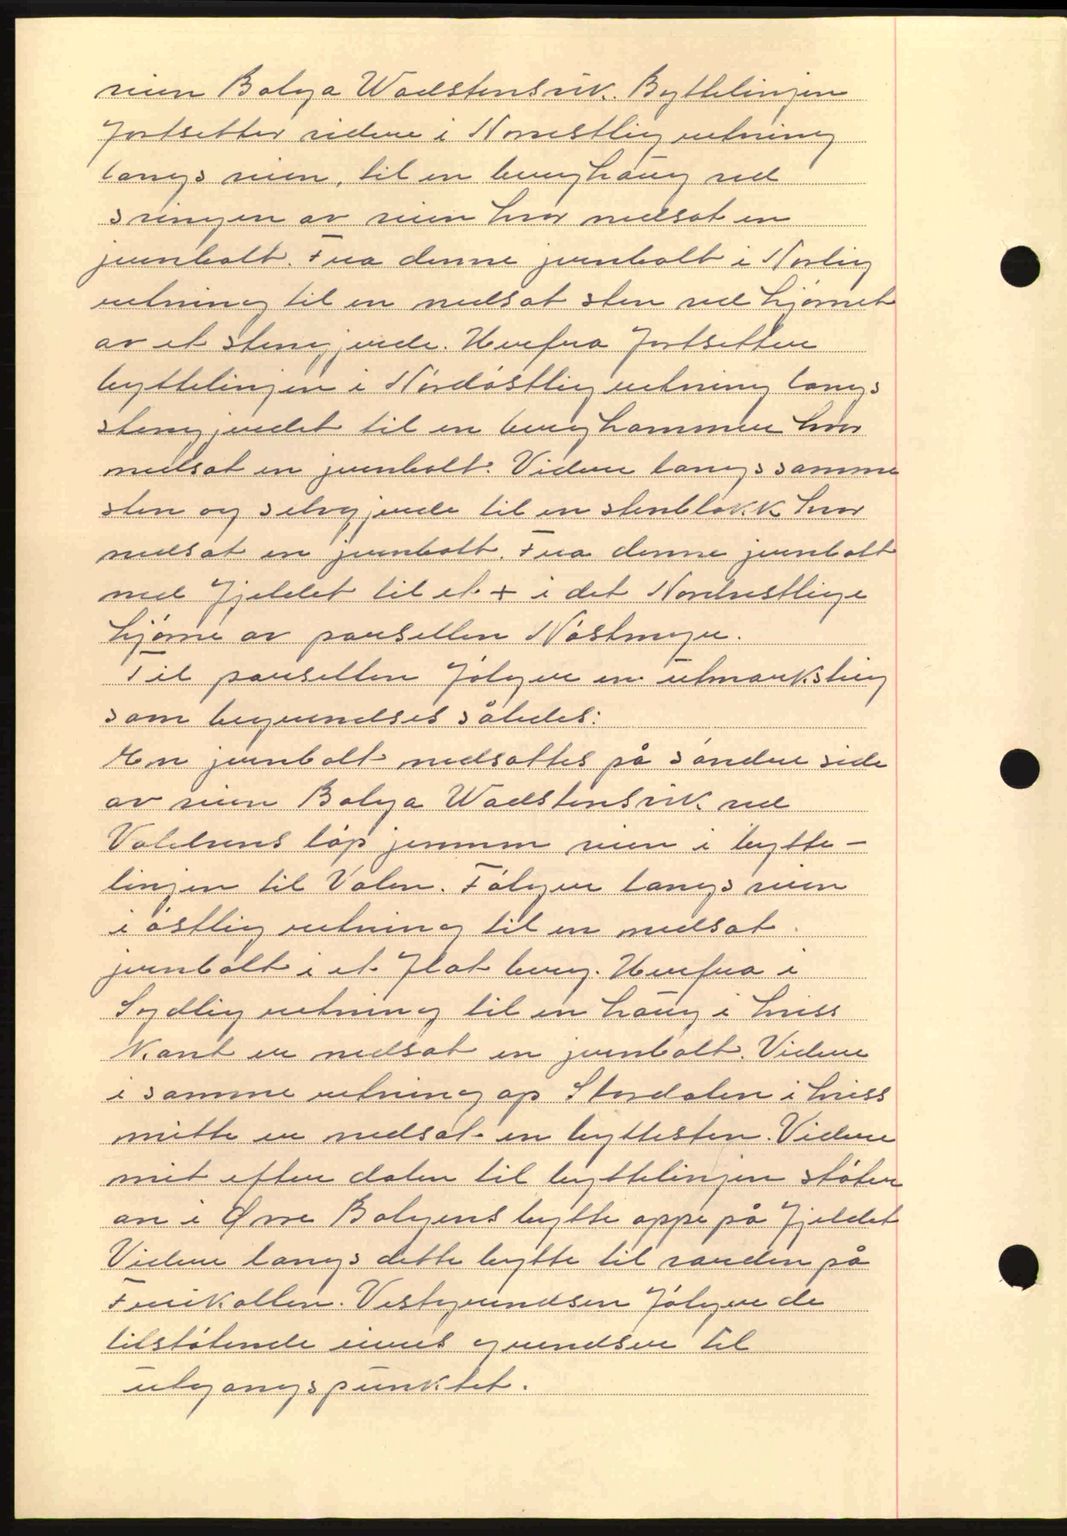 veien Bolga Wadstensvik. Byttelinjen
fortsetter videre i Norvestlig retning
langs veien, til en berghaug ved
svingen av veien hvor nedsat en
jernbolt. Fra denne jernbolt i Norlig
retning til en nedsat sten ved hjørnet
av et stengjerde. Herfra fortsetter
byttelinjen i Nordøstlig retning langs
stengjerdet til en berghammer hvor
nedsat en jernbolt. Videre langs samme
sten og selvgjerde til en stenblokk hvor
nedsat en jernbolt. Fra denne jernbolt
ned fjeldet til et + i det Nordvestlige
hjørne av parsellen Nøstmyr.
Til parsellen følger en utmarksteig
som begrendses således:
En jernbolt nedsattes på søndre side
av veien Bolga Wadstensvik ved
Valelvens løp jennem veien i bytte-
linjen til Valen. Følger langs veien
i østlig retning til en nedsat
jernbolt i et flat berg. Herfra i
Sydlig retning til en haug i hviss
Kant er nedsat en jernbolt. Videre
i samme retning op Stordalen i hviss
mitte er nedsat en byttesten. Videre
mit efter dalen til byttelinjen støter
an i Øvre Bolgens bytte oppe på fjeldet
Videre langs dette bytte til randen på
Furikollen. Vestgrendsen følger de
tilstøtende eieres grendser til
utgangspunktet.